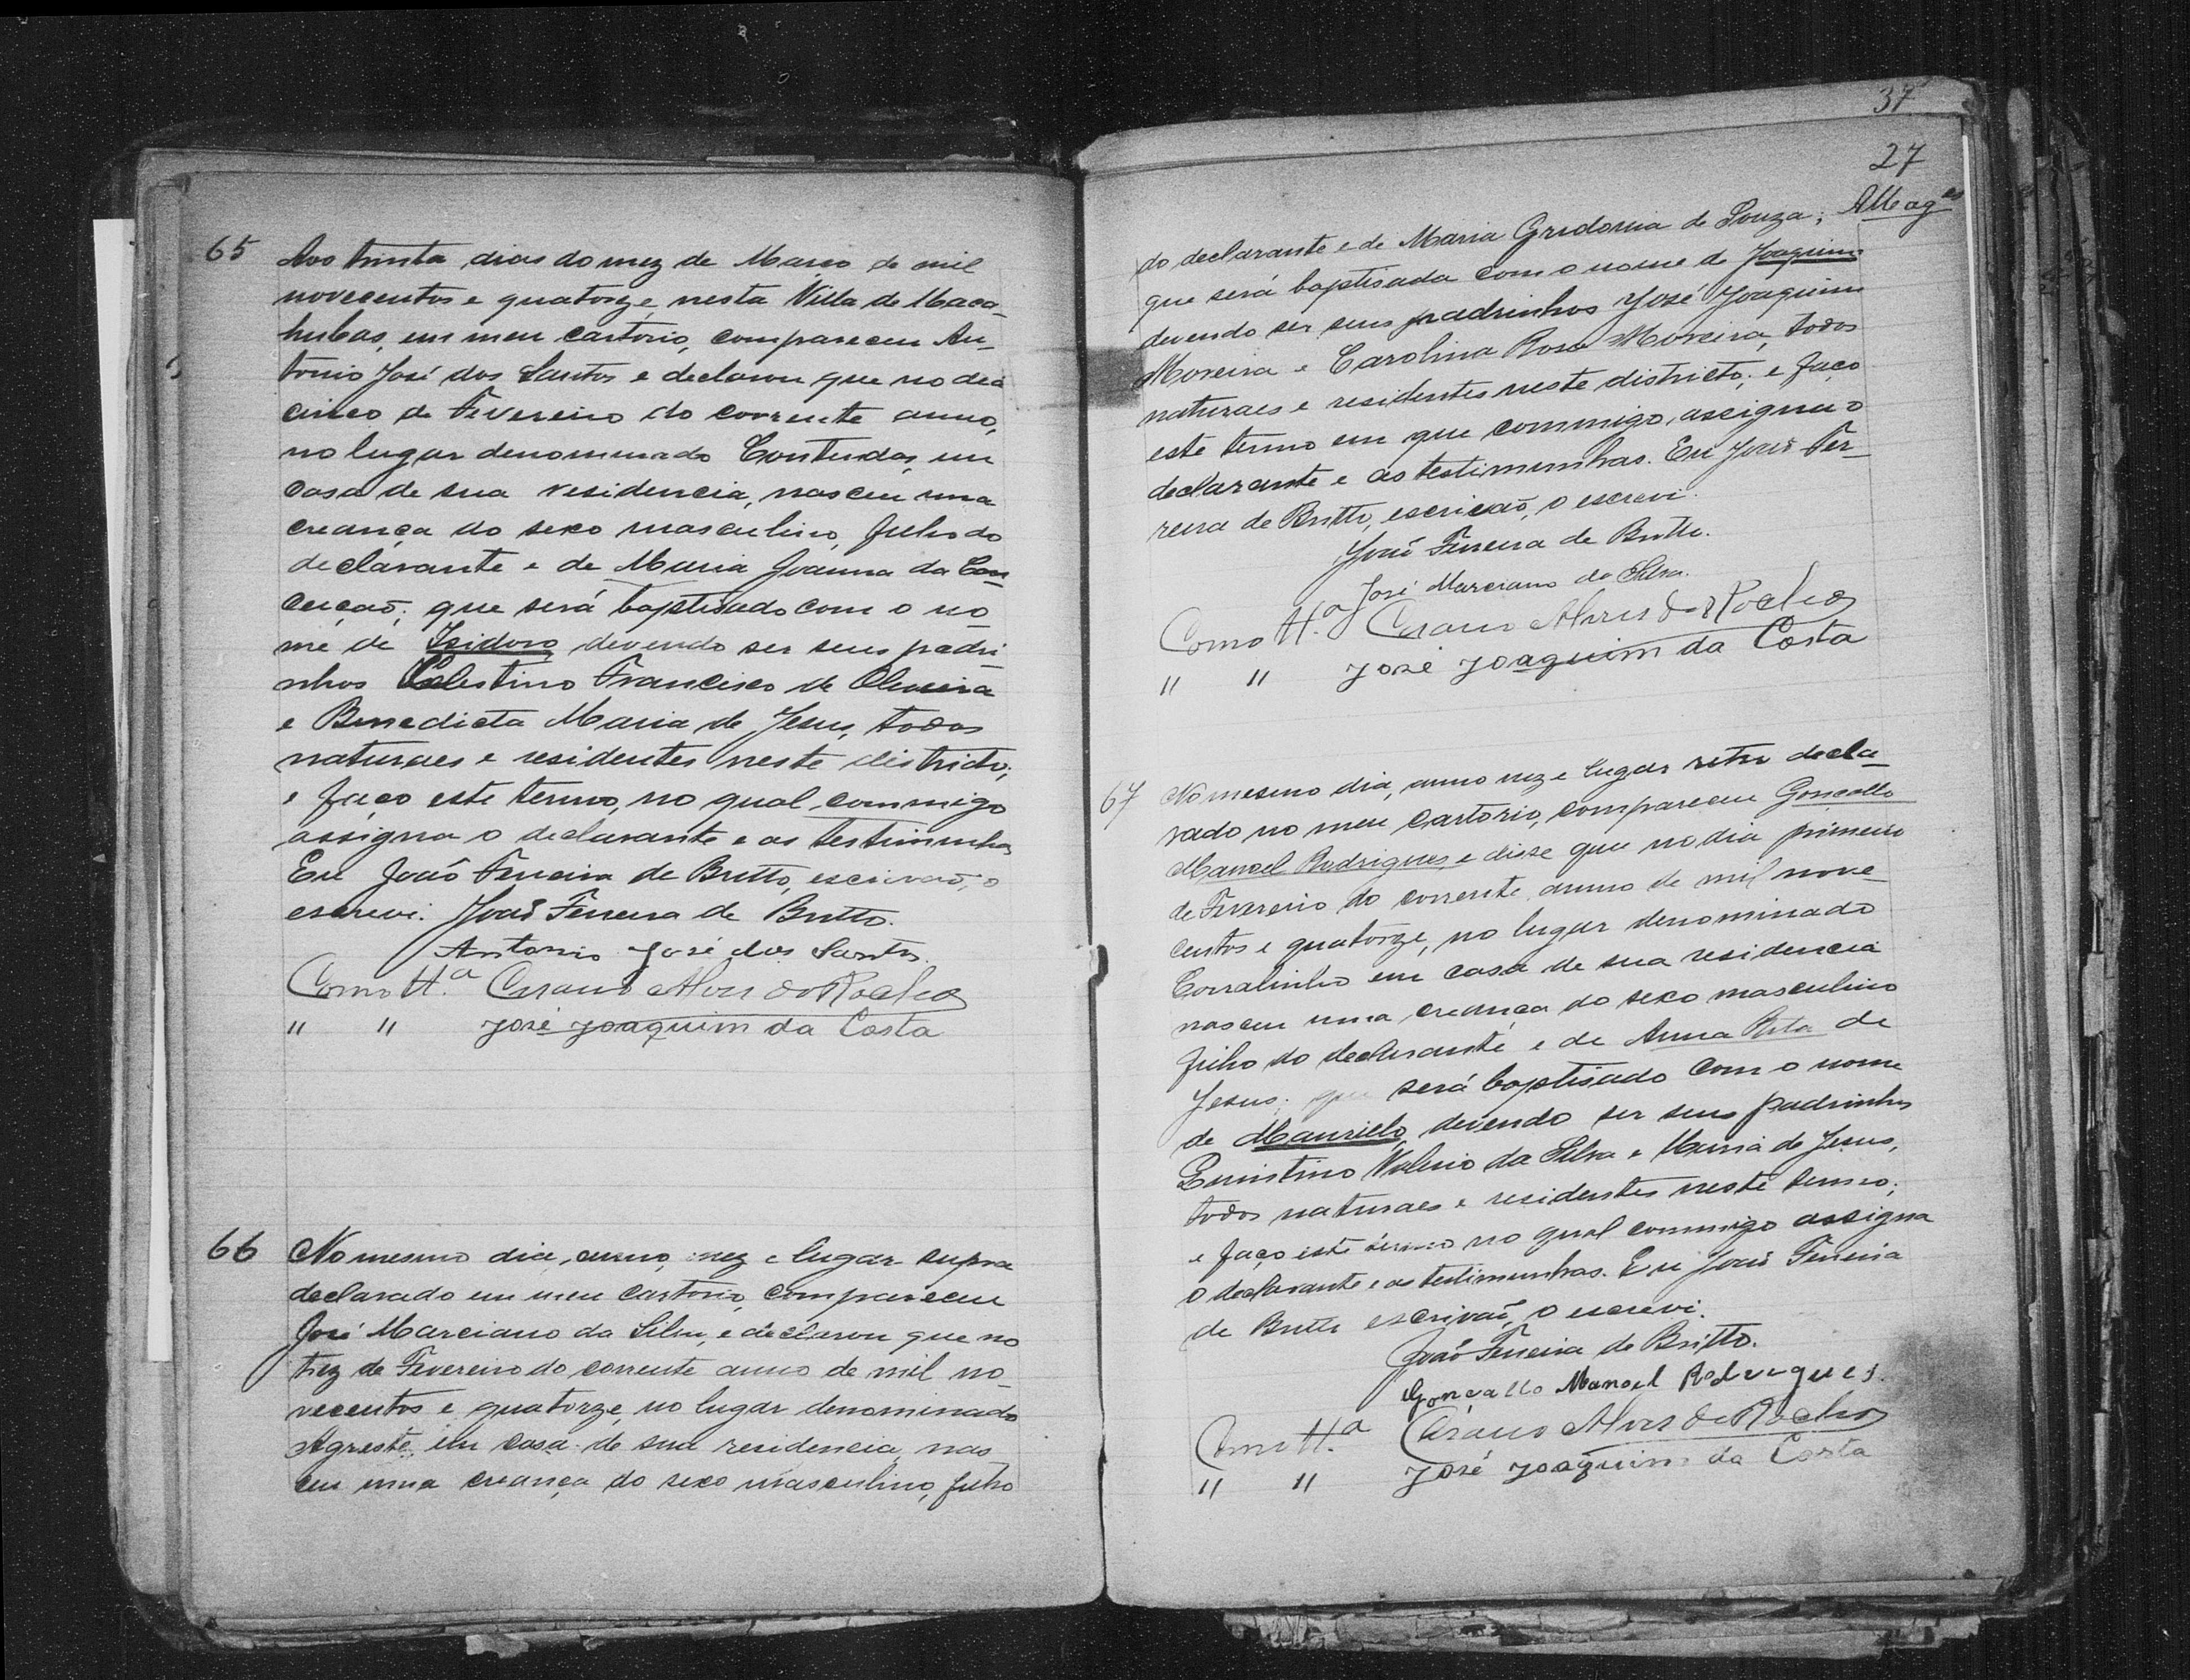 65 Aos trinta dias do mez de Março de mil
novecentos e quatorze, nesta Villa de Maca-
hubas, em meu cartorio, compareceu An-
tonio José dos Santos e declarou que no dia
cinco de Fevereiro do corrente anno,
no lugar denominado Contendas, em
casa de sua residencia, nasceu uma
creança do sexo masculino, filho do
declarante e de Maria Joanna da Con
ceição; que será baptisado com o no
me de Isidoro, devendo ser seus padri-
nhos Celestino Francisco de Oliveira
e Benedicta Maria de Jesus, todos
naturaes e residentes neste districto;
e faço este termo, no qual commigo
assigna o declarante e as testimunhas
Eu João Ferreira de Britto, escrivão, o
escrevi. João Ferreira de Britto.
Antonio José dos Santos.
Como tt.ª Alves da Rocha
" " José Joaquim da Costa
66 No mesmo dia, anno, mez e lugar supra
declarado em meu cartorio, compareceu
José Marciano da Silva, e declarou que no
trez de Fevereiro do corrente anno de mil no-
vecentos e quatorze, no lugar denominado
Agreste, em casa de sua residencia, nas
ceu uma creança do sexo masculino, filho
37
27
do declarante e de Maria de Souza;
que será baptisada com o nome de Joaquim
devendo ser seus padrinhos José Joaquim
Moreira e Carolina Rosa Moreira, todos
naturaes e residentes neste districto; e faço
este termo em que commigo, assigna o
declarante e as testimunhas. Eu João Fer-
reira de Britto, escrivão, o escrevi.
João Ferreira de Britto.
José Marciano da Silva.
Como tt.ª Alves da Rocha
" " José Joaquim da Costa
67 No mesmo dia, anno mez e lugar retro decla-
rado no meu cartorio, compareceu Gonçallo
Manoel Rodrigues, e disse que no dia primeiro
de Fevereiro do corrente anno de mil nove-
centos e quatorze, no lugar denominado
Corralinho em casa de sua residencia
nasceu uma creança do sexo masculino
filho do declarante e de Anna Rita de
Jesus; que será baptisado com o nome
de devendo ser seus padrinhos
Valerio da Silva e Maria de Jesus,
todos naturaes e residentes neste termo;
e faço este termo no qual commigo assigna
o declarante e as testimunhas. Eu João Ferreira
de Britto escrivão, o escrevi.
João Ferreira de Britto.
Gonçallo Manoel Rodrigues.
Como tt.ª Alves da Rocha
" " José Joaquim da Costa